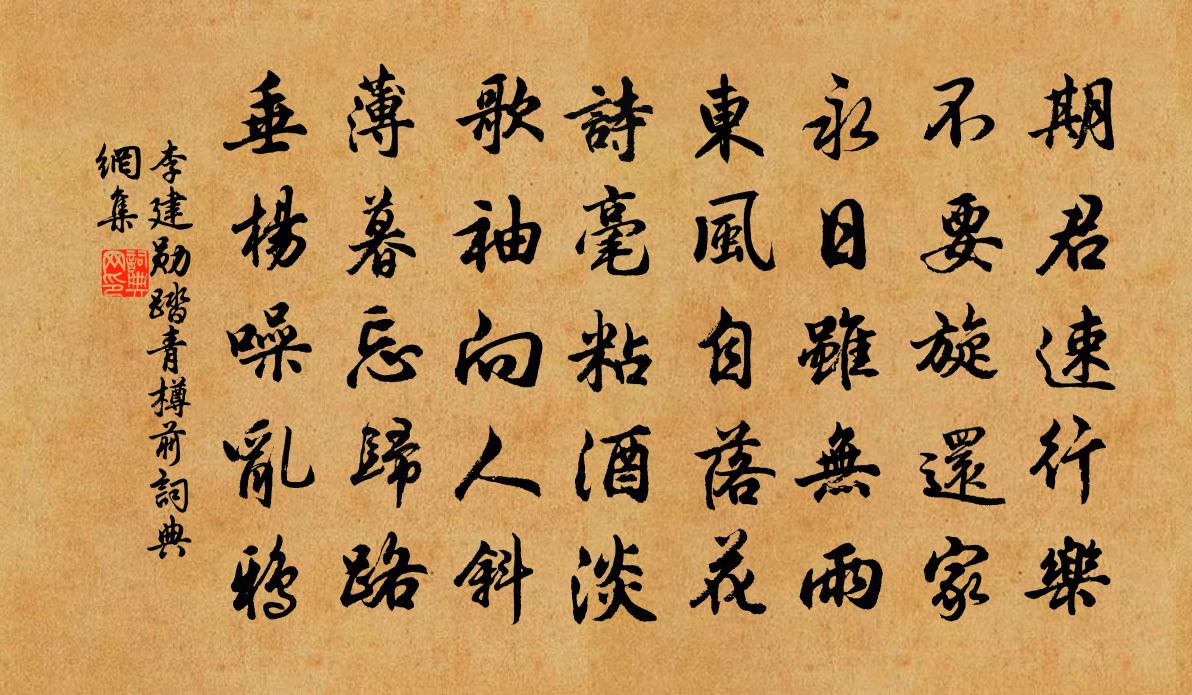 期君速行樂
不要旋還家
永日雖無雨
東風自落花
詩毫粘酒淡
歌袖向人斜
薄暮忘歸路
垂楊噪亂鴉
李建勛踏青樽前詞典
網集
詞典
网印